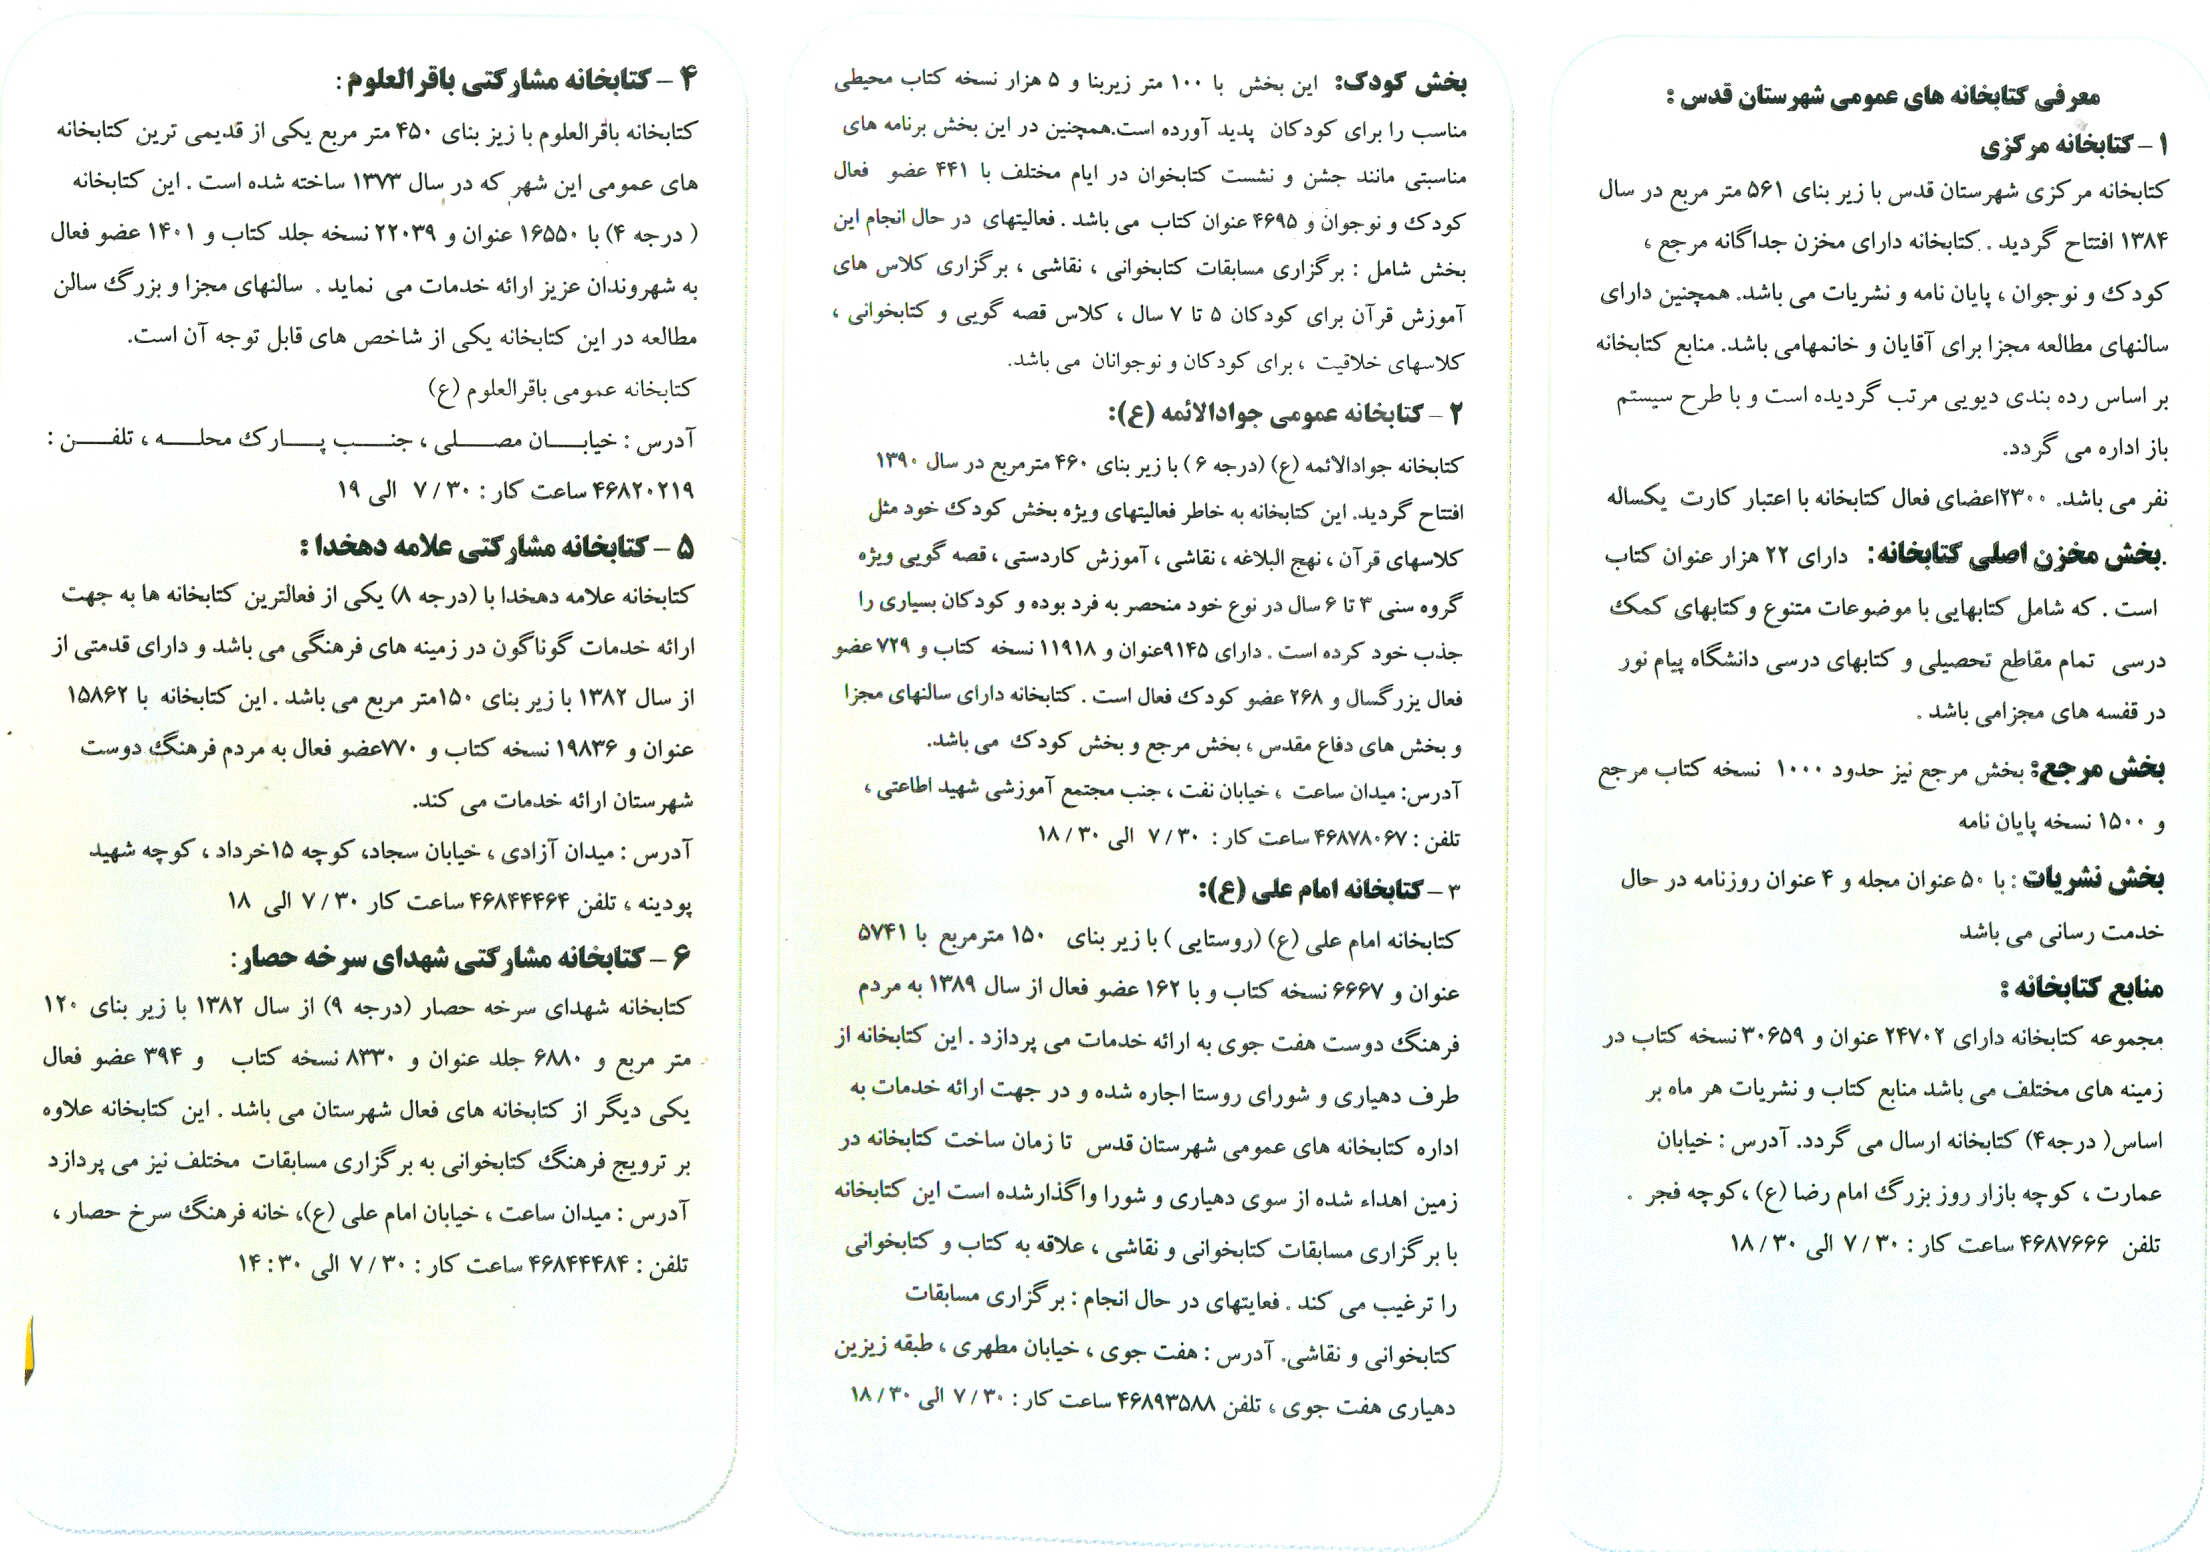 معرفی کتابخانه های عمومی شهرستان قدس :
۱ – کتابخانه مرکزی
کتابخانه مرکزی شهرستان قدس با زیر بنای ۵۶۱ متر مربع در سال
۱۳۸۴ افتتاح گردید . کتابخانه دارای مخزن جداگانه مرجع ،
کودک و نوجوان ، پایان نامه و نشریات می باشد. همچنین دارای
سالنهای مطالعه مجزا برای آقایان و خانمهامی باشد. منابع کتابخانه
بر اساس رده بندی دیویی مرتب گردیده است و با طرح سیستم
باز اداره می گردد.
نفر می باشد. ۲۳۰۰اعضای فعال کتابخانه با اعتبار کارت یکساله
.بخش مخزن اصلی کتابخانه: دارای ۲۲ هزار عنوان کتاب
است . که شامل کتابهایی با موضوعات متنوع وکتابهای کمک
درسی تمام مقاطع تحصیلی و کتابهای درسی دانشگاه پیام نور
در قفسه های مجزامی باشد .
بخش مرجع: بخش مرجع نیز حدود ۱۰۰۰ نسخه کتاب مرجع
و ۱۵۰۰ نسخه پایان نامه
بخش نشریات : با ۵۰ عنوان مجله و ۴ عنوان روزنامه در حال
خدمت رسانی می باشد
منابع کتابخانه :
مجموعه کتابخانه دارای ۲۴۷۰۲ عنوان و ۳۰۶۵۹ نسخه کتاب در
زمینه های مختلف می باشد منابع کتاب و نشریات هر ماه بر
اساس( درجه۴) کتابخانه ارسال می گردد. آدرس : خیابان
عمارت ، کوچه بازار روز بزرگ امام رضا (ع) ،کوچه فجر .
تلفن ۴۶۸۷۶۶۶ ساعت کار : ۷/۳۰ الی ۱۸/۳۰
بخش کودک: این بخش با ۱۰۰ متر زیربنا و ۵ هزار نسخه کتاب محیطی
مناسب را برای کودکان پدید آورده است.همچنین در این بخش برنامه های
مناسبتی مانند جشن و نشست کتابخوان در ایام مختلف با ۴۴۱ عضو فعال
کودک و نوجوان و ۴۶۹۵ عنوان کتاب می باشد . فعالیتهای در حال انجام این
بخش شامل : برگزاری مسابقات کتابخوانی ، نقاشی ، برگزاری کلاس های
آموزش قرآن برای کودکان ۵ تا ۷ سال ، کلاس قصه گویی و کتابخوانی ،
کلاسهای خلاقیت ، برای کودکان و نوجوانان می باشد.
۲ – کتابخانه عمومی جوادالائمه (ع):
کتابخانه جوادالائمه (ع) (درجه ۶ ) با زیر بنای ۴۶۰ مترمربع در سال ۱۳۹۰
افتتاح گردید. این کتابخانه به خاطر فعالیتهای ویژه بخش کودک خود مثل
کلاسهای قرآن ، نهج البلاغه ، نقاشی ، آموزش کاردستی ، قصه گویی ویژه
گروه سنی ۳ تا ۶ سال در نوع خود منحصر به فرد بوده و کودکان بسیاری را
جذب خود کرده است . دارای ۹۱۴۵عنوان و ۱۱۹۱۸ نسخه کتاب و ۷۲۹ عضو
فعال بزرگسال و ۲۶۸ عضو کودک فعال است . کتابخانه دارای سالنهای مجزا
و بخش های دفاع مقدس ، بخش مرجع و بخش کودک می باشد.
آدرس: میدان ساعت ، خیابان نفت ، جنب مجتمع آموزشی شهید اطاعتی ،
تلفن : ۴۶۸۷۸۰۶۷ ساعت کار : ۷/۳۰ الی ۱۸/۳۰
۳ – کتابخانه امام علی (ع):
کتابخانه امام علی (ع) (روستایی ) با زیر بنای ۱۵۰ مترمربع با ۵۷۴۱
عنوان و ۶۶۶۷ نسخه کتاب و با ۱۶۲ عضو فعال از سال ۱۳۸۹ به مردم
فرهنگ دوست هفت جوی به ارائه خدمات می پردازد . این کتابخانه از
طرف دهیاری و شورای روستا اجاره شده و در جهت ارائه خدمات به
اداره کتابخانه های عمومی شهرستان قدس تا زمان ساخت کتابخانه در
زمین اهداء شده از سوی دهیاری و شورا واگذارشده است این کتابخانه
با برگزاری مسابقات کتابخوانی و نقاشی ، علاقه به کتاب و کتابخوانی
را ترغیب می کند . فعایتهای در حال انجام : برگزاری مسابقات
کتابخوانی و نقاشی. آدرس : هفت جوی ، خیابان مطهری ، طبقه زیزین
دهیاری هفت جوی ، تلفن ۴۶۸۹۳۵۸۸ ساعت کار : ۷/۳۰ الی ۱۸/۳۰
۴ – کتابخانه مشارکتی باقرالعلوم :
کتابخانه باقرالعلوم با زیز بنای ۴۵۰ متر مربع یکی از قدیمی ترین کتابخانه
های عمومی این شهر که در سال ۱۳۷۳ ساخته شده است . این کتابخانه
( درجه ۴) با ۱۶۵۵۰ عنوان و ۲۲۰۳۹ نسخه جلد کتاب و ۱۴۰۱ عضو فعال
به شهروندان عزیز ارائه خدمات می نماید . سالنهای مجزا و بزرگ سالن
مطالعه در این کتابخانه یکی از شاخص های قابل توجه آن است.
کتابخانه عمومی باقرالعلوم (ع)
آدرس : خیابان مصلی ، جنب پارک محله ، تلفن :
۴۶۸۲۰۲۱۹ ساعت کار : ۷/۳۰ الی ۱۹
۵ – کتابخانه مشارکتی علامه دهخدا :
کتابخانه علامه دهخدا با (درجه ۸) یکی از فعالترین کتابخانه ها به جهت
ارائه خدمات گوناگون در زمینه های فرهنگی می باشد و دارای قدمتی از
از سال ۱۳۸۲ با زیر بنای ۱۵۰متر مربع می باشد . این کتابخانه با ۱۵۸۶۲
عنوان و ۱۹۸۳۶ نسخه کتاب و ۷۷۰عضو فعال به مردم فرهنگ دوست
شهرستان ارائه خدمات می کند.
آدرس : میدان آزادی ، خیابان سجاد، کوچه ۱۵خرداد ، کوچه شهید
پودینه ، تلفن ۴۶۸۴۴۴۶۴ ساعت کار ۷/۳۰ الی ۱۸
۶ – کتابخانه مشارکتی شهدای سرخه حصار:
کتابخانه شهدای سرخه حصار (درجه ۹) از سال ۱۳۸۲ با زیر بنای ۱۲۰
متر مربع و ۶۸۸۰ جلد عنوان و ۸۳۳۰ نسخه کتاب و ۳۹۴ عضو فعال
یکی دیگر از کتابخانه های فعال شهرستان می باشد . این کتابخانه علاوه
بر ترویج فرهنگ کتابخوانی به برگزاری مسابقات مختلف نیز می پردازد
آدرس : میدان ساعت ، خیابان امام علی (ع)، خانه فرهنگ سرخ حصار ،
تلفن : ۴۶۸۴۴۴۸۴ ساعت کار : ۷/۳۰ الی ۱۴:۳۰